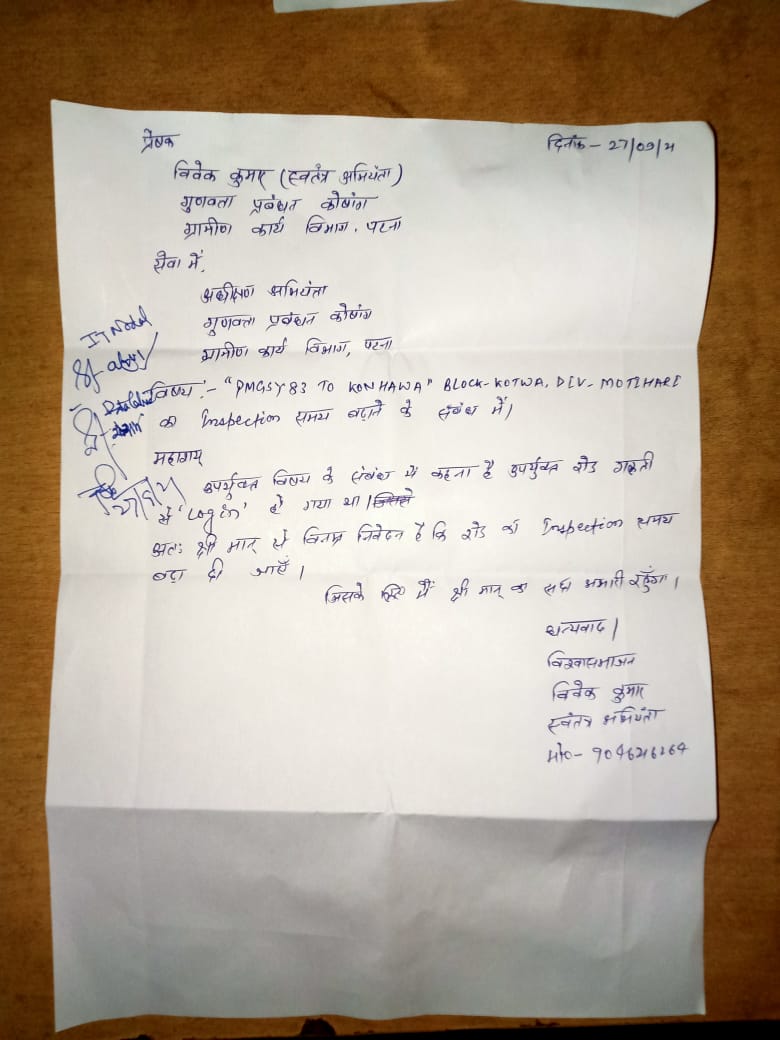 प्रेषक
दिनांक - 27/09/21
विवेक कुमार (स्वतंत्र अभियंता)
गुणवता प्रबंधन कोषांग
ग्रामीण कार्य विभाग, पटना
सेवा में,
अधीक्षण अभियंता
गुणवता प्रबंधन कोषांग
ग्रामीण कार्य विभाग, पटना
IT Nodal
विषय :- "PMGSY 83 TO KONHAWA" BLOCK-KOTWA, DIV- MOTIHARI
का Inspection समय बढ़ाने के संबंध में।
महाशय्
उपर्युक्त विषय के संबंध में कहना है उपर्युक्त रोड गलती
से 'Log in' हो गया था।
अतः श्री मान् से विनम्र निवेदन है कि रोड का Inspection समय
बढ़ा दी जाएँ।
जिसके लिए मैं श्री मान् का सदा अभारी रहूँगा।
धन्यवाद।
विश्वासभाजन
विवेक कुमार
स्वतंत्र अभियंता
मो०-